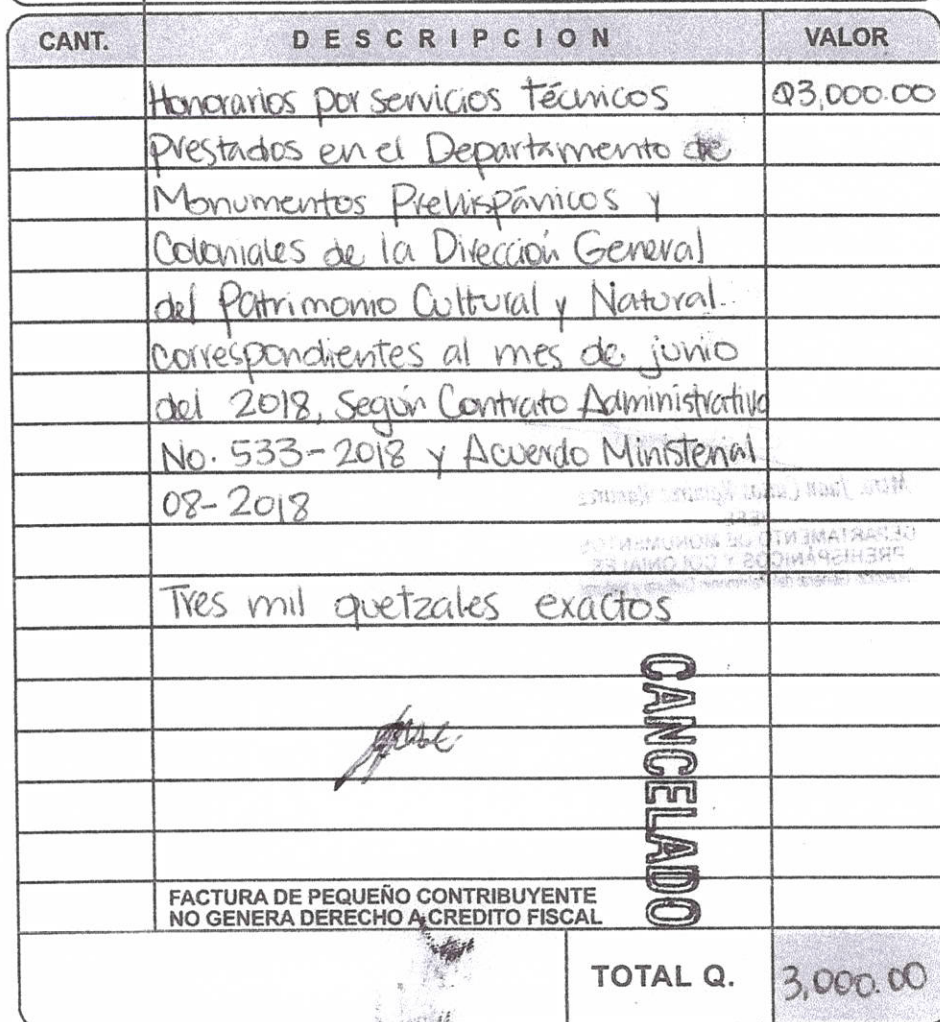 CANT. DESCRIPCION VALOR
Honorarios por servicios técnicos Q3,000.00
prestados en el Departamento de
Monumentos Prehispánicos y
Coloniales de la Dirección General
del Patrimonio Cultural y Natural.
correspondientes al mes de junio
del 2018, Según Contrato Administrativo
No. 533-2018 y Acuerdo Ministerial
08-2018
JEFE
DEPARTAMENTO DE MONUMENTOS
PREHISPÁNICOS Y COLONIALES
Tres mil quetzales exactos
CANCELADO
FACTURA DE PEQUEÑO CONTRIBUYENTE
NO GENERA DERECHO A CREDITO FISCAL
TOTAL Q. 3,000.00